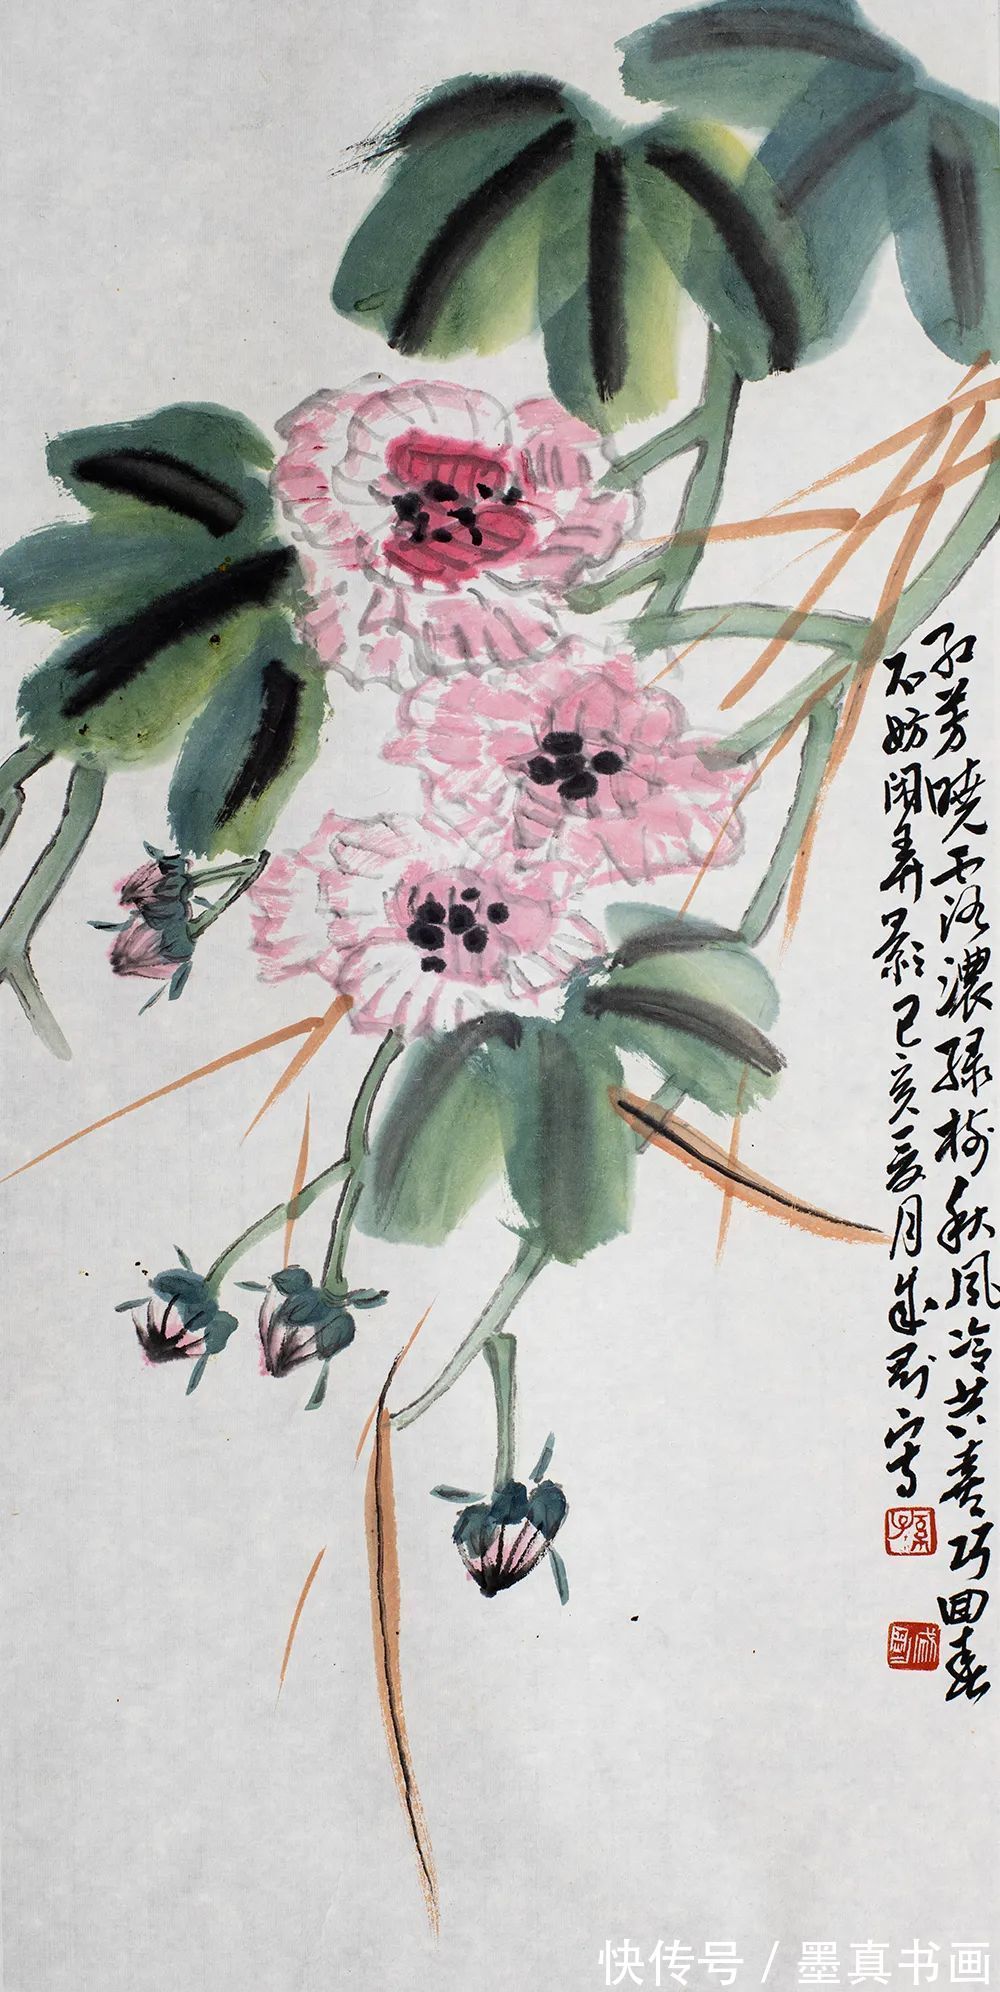 红芳晓露浓绿树秋风冷共喜巧回春
不妨闲弄影己亥夏月成刚写
孙
成刚
快传号/墨真书画